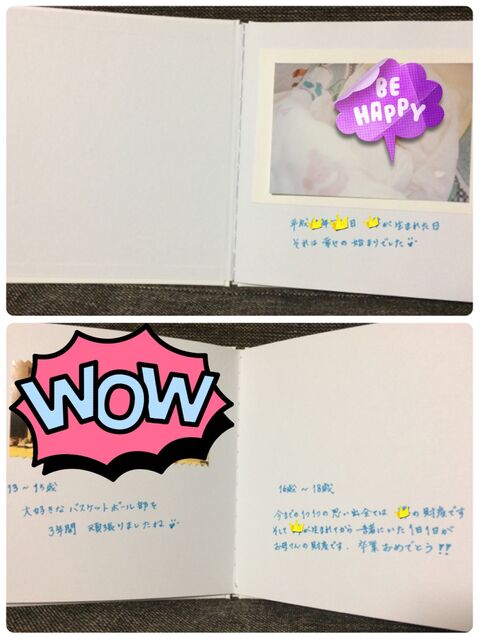 BE
HAPPY
平成 年 日 が生まれた日
それは幸せの始まりでした
WOW
13〜15歳
大好きなバスケットボール部を
3年間 頑張りましたね
16歳〜18歳
今までの1つ1つの思い出全ては の財産です
そして が生まれてから一緒にいた1日1日が
お母さんの財産です。卒業おめでとう!!